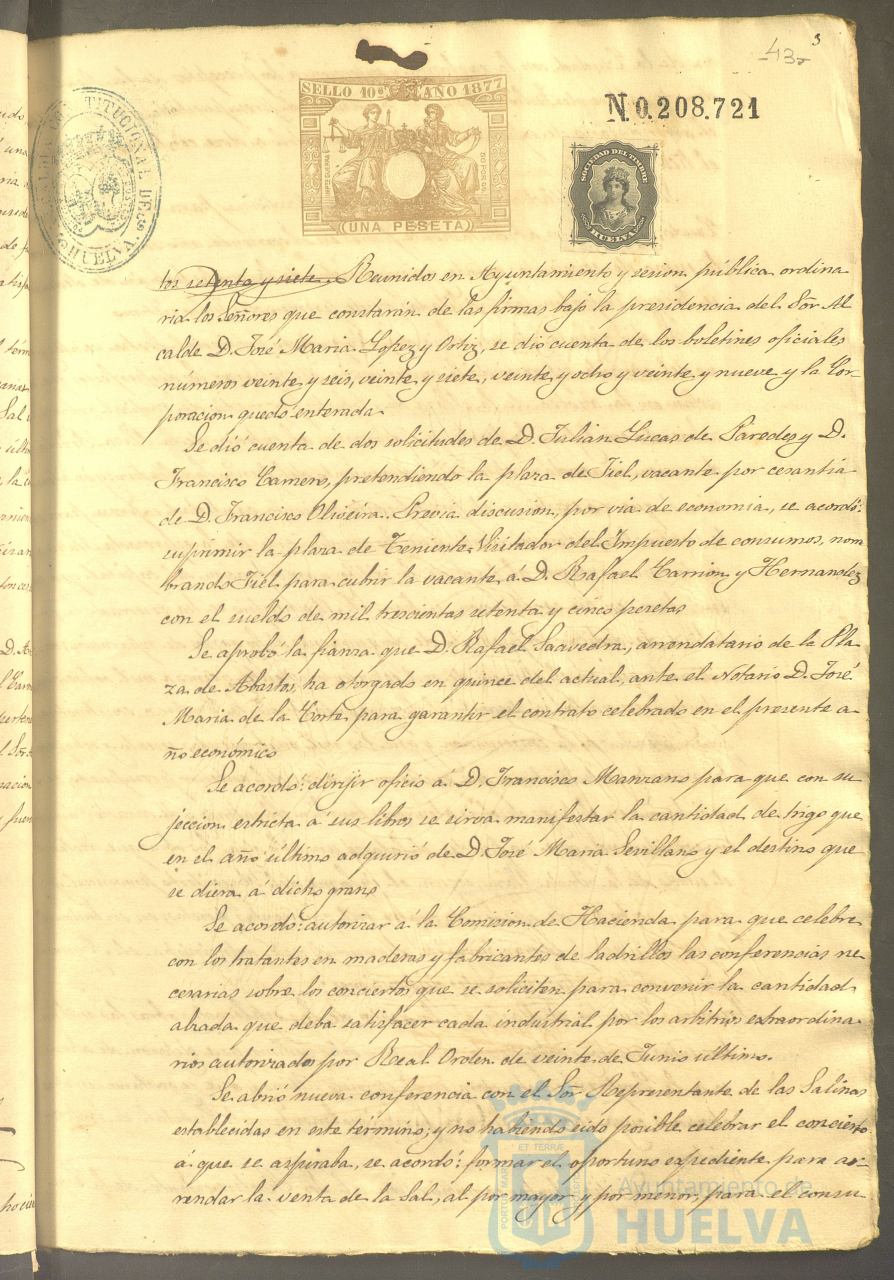 3
43
SELLO 10º AÑO 1877
UNA PESETA
N.0.208.721
SOCIEDAD DEL TIMBRE
HUELVA
ALCALDIA CONSTITUCIONAL DE HUELVA
tos setenta y siete. Reunidos en Ayuntamiento y sesion pública ordina
ria los Señores que constarán de las firmas bajo la presidencia del Sor Al
calde D. José Maria Lopez y Ortiz, se dió cuenta de los boletines oficiales
números veinte y seis, veinte y siete, veinte y ocho y veinte y nueve y la Cor-
poracion quedó enterada.
Se dió cuenta de dos solicitudes de D. Julian Lucas de Paredes y D.
Francisco Camero, pretendiendo la plaza de Fiel, vacante por cesantia
de D. Francisco Oliveira. Previa discusion, por via de economia, se acordó:
suprimir la plaza de Teniente Visitador del Impuesto de consumos, nom
brando Fiel para cubrir la vacante á D. Rafael Carrion y Hernandez
con el sueldo de mil trescientas setenta y cinco pesetas
Se aprobó la fianza que D. Rafael Saavedra, arrendatario de la Pla
za de Abastos, ha otorgado en quince del actual, ante el Notario D. José
Maria de la Corte para garantir el contrato celebrado en el presente a-
ño económico
Se acordó: dirijir oficio á D. Francisco Manzano para que con su
jeccion estricta á sus libros se sirva manifestar la cantidad de trigo que
en el año último adquirió de D. José Maria Sevillano y el destino que
se diera á dicho grano
Se acordó: autorizar á la Comision de Hacienda para que celebre
con los tratantes en maderas y fabricantes de ladrillos las conferencias ne
cesarias sobre los conciertos que se soliciten para convenir la cantidad
alzada que deba satisfacer cada industrial por los arbitrios extraordina
rios autorizados por Real Orden de veinte de Junio último.
Se abrió nueva conferencia con el Sor Representante de las Salinas
establecidas en este término; y no habiendo sido posible celebrar el concierto
á que se aspiraba, se acordó: formar el oportuno espediente para ar-
rendar la venta de la Sal, al por mayor y por menor, para el consu
Ayuntamiento de
HUELVA